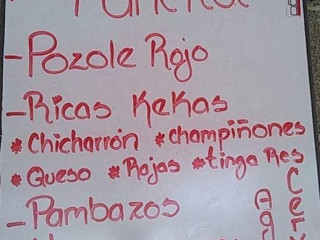 -Pozole Rojo
-Ricas Kekas
*Chicharrón *champiñones
*Queso *Rajas *tinga Res
-Pambazos